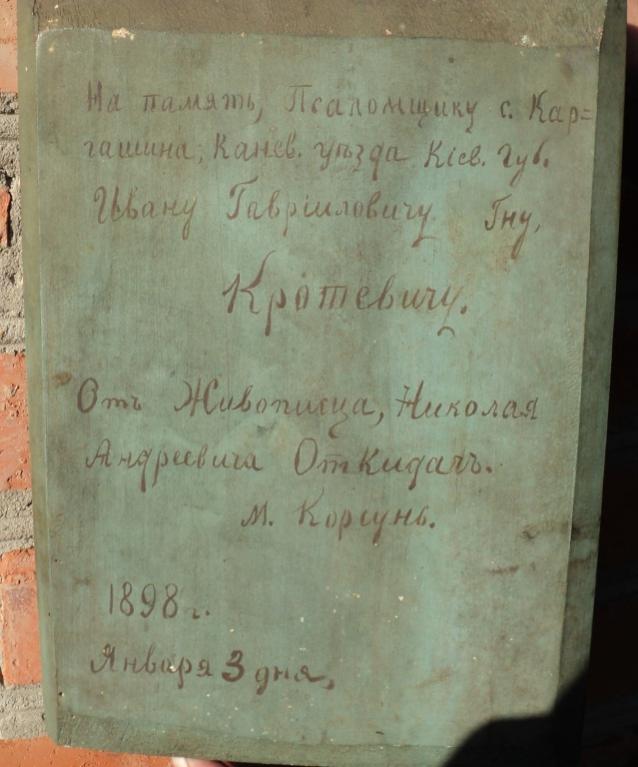 На память, Псаломщику с. Кар=
гашина, Канев. уѣзда Кіев. Губ.
Ивану Гавріиловичу Гну,
Кротевичу.
Отъ Живописца, Николая
Андреевича ОткидачЪ.
м. Корсунь.
1898 г.
Января 3 дня,